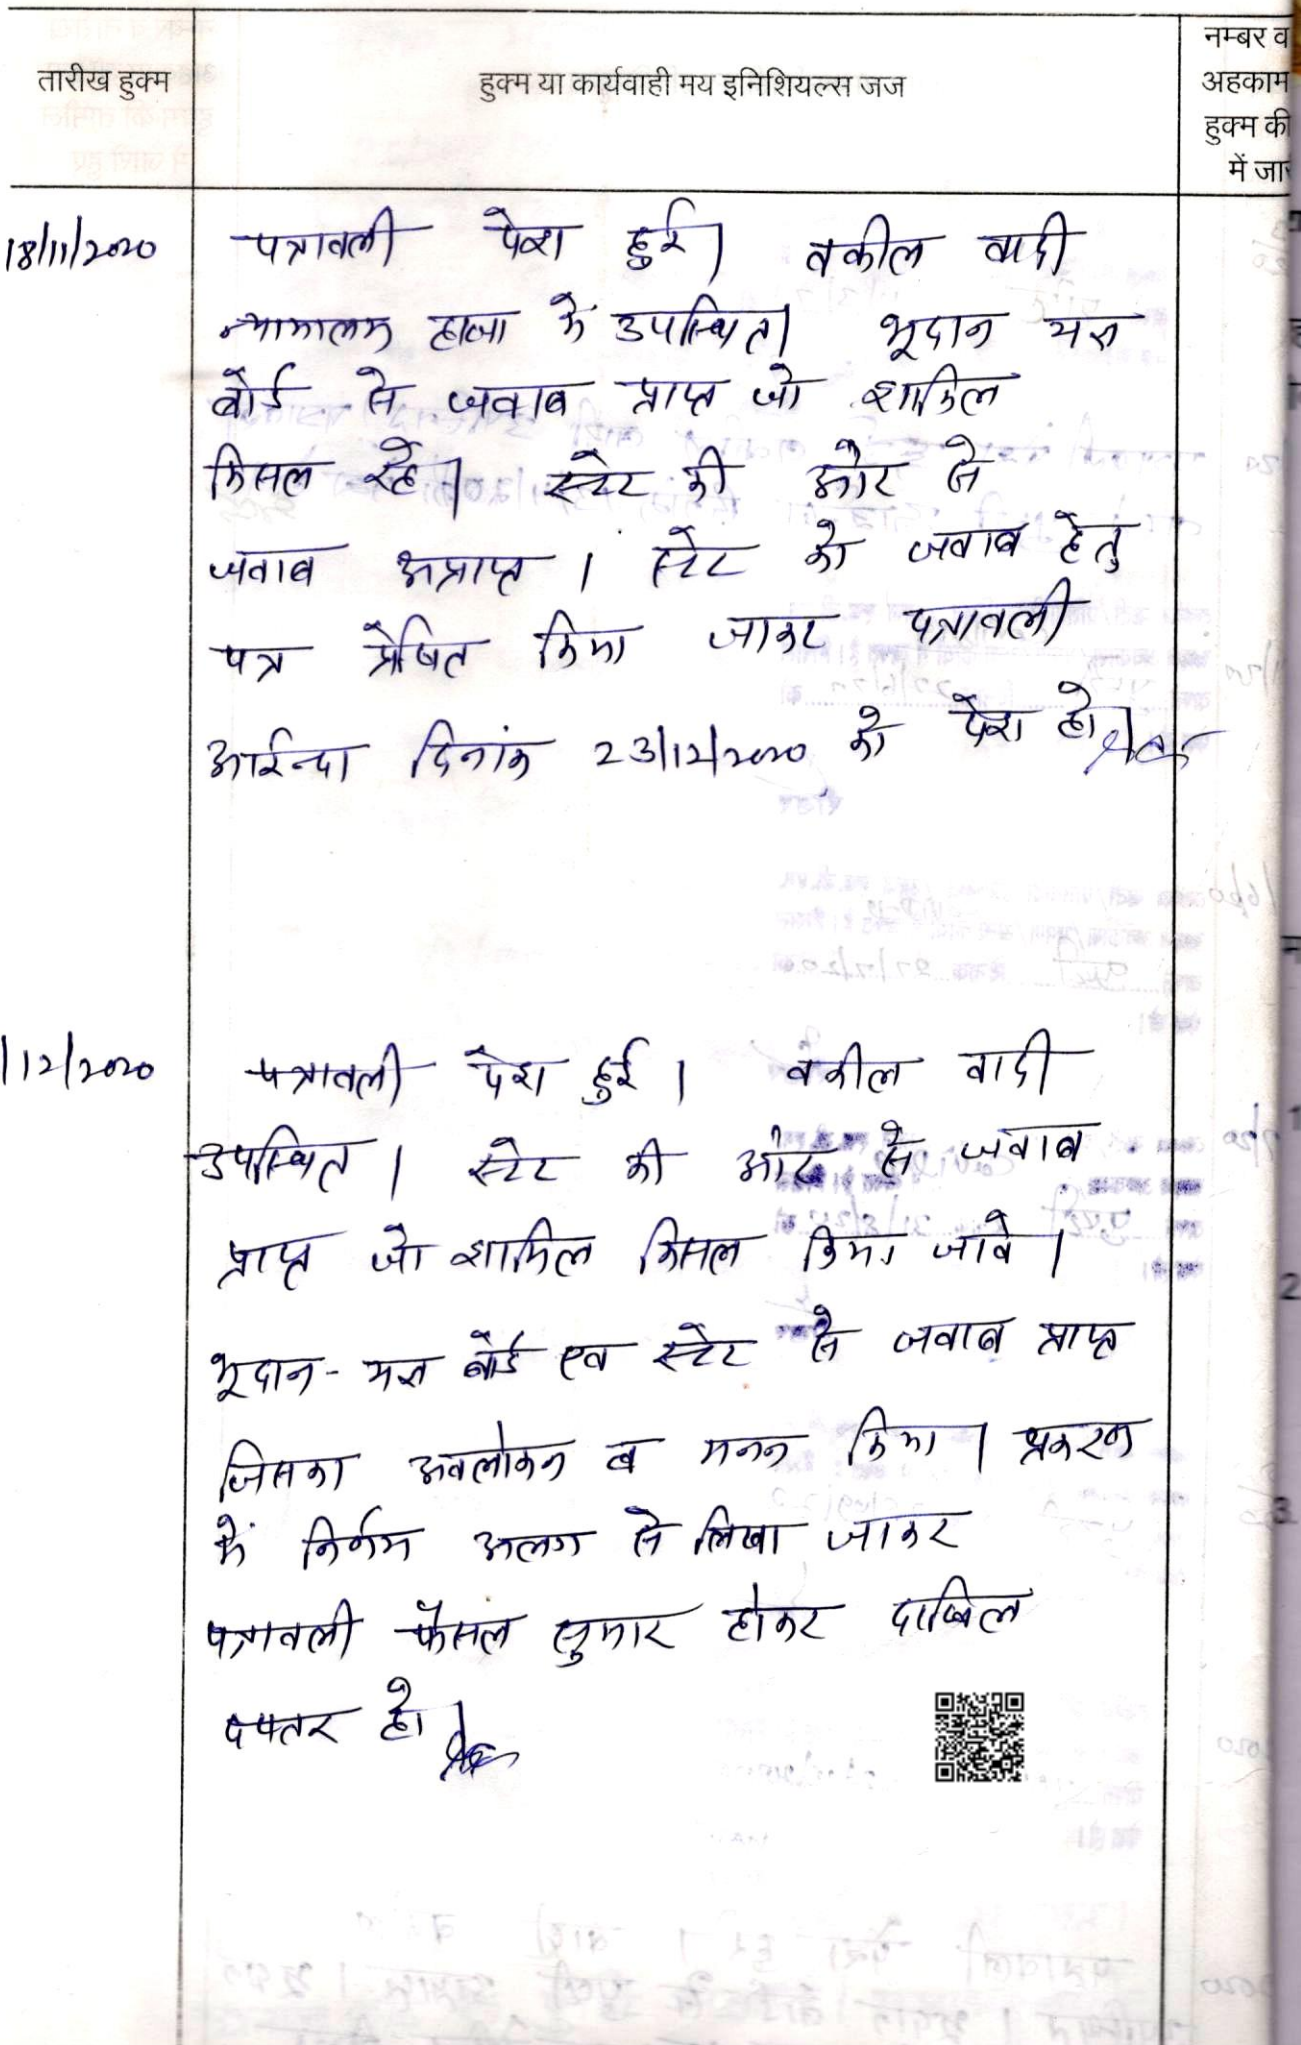 तारीख हुक्म
हुक्म या कार्यवाही मय इनिशियल्स जज
नम्बर व
अहकाम
हुक्म की
में जार
18/11/2020
पत्रावली पेश हुई। वकील वादी
न्यायालय हाजा में उपस्थित। भूदान यज्ञ
बोर्ड से जवाब प्राप्त जो शामिल
मिसल रहे। स्टेट की ओर से
जवाब अप्राप्त। स्टेट को जवाब हेतु
पत्र प्रेषित किया जाकर पत्रावली
आईन्दा दिनांक 23/12/2020 को पेश हो।
/12/2020
पत्रावली पेश हुई। वकील वादी
उपस्थित। स्टेट की ओर से जवाब
प्राप्त जो शामिल मिसल किया जावे।
भूदान-यज्ञ बोर्ड एव स्टेट से जवाब प्राप्त
जिसका अवलोकन व मनन किया। प्रकरण
में निर्णय अलग से लिखा जाकर
पत्रावली फैसल सुमार होकर दाखिल
दफ्तर हो।